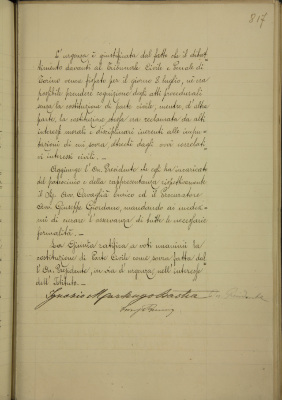 817
L'urgenza è giustificata dal fatto che il dibat-
timento davanti al Tribunale Civile e Penale di
Torino venne fissato per il giorno 2 luglio, nè era
possibile prendere cognizione degli atti procedurali
senza la costituzione di parte civile, mentre, d'altra
parte, la costituzione stessa era reclamata da alti
interessi morali e disciplinari inerenti alle impu-
tazioni di cui sopra oltreché dagli ora
interessi civili. _
Aggiunge l'On. Presidente che egli ha incaricato
del patrocinio e della rappresentanza rispettivamente
il Sig. Avv. Cavaglià Enrico ed il Procuratore
Avv. Giuseppe Giordano, mandando ai mede-
mi di curare l'osservanza di tutte le necessarie
formalità. _
La Giunta ratifica a voti unanimi la
costituzione di Parte Civile come sopra fatta dal-
l'On. Presidente, in via di urgenza nell'interesse
dell'Istituto. _